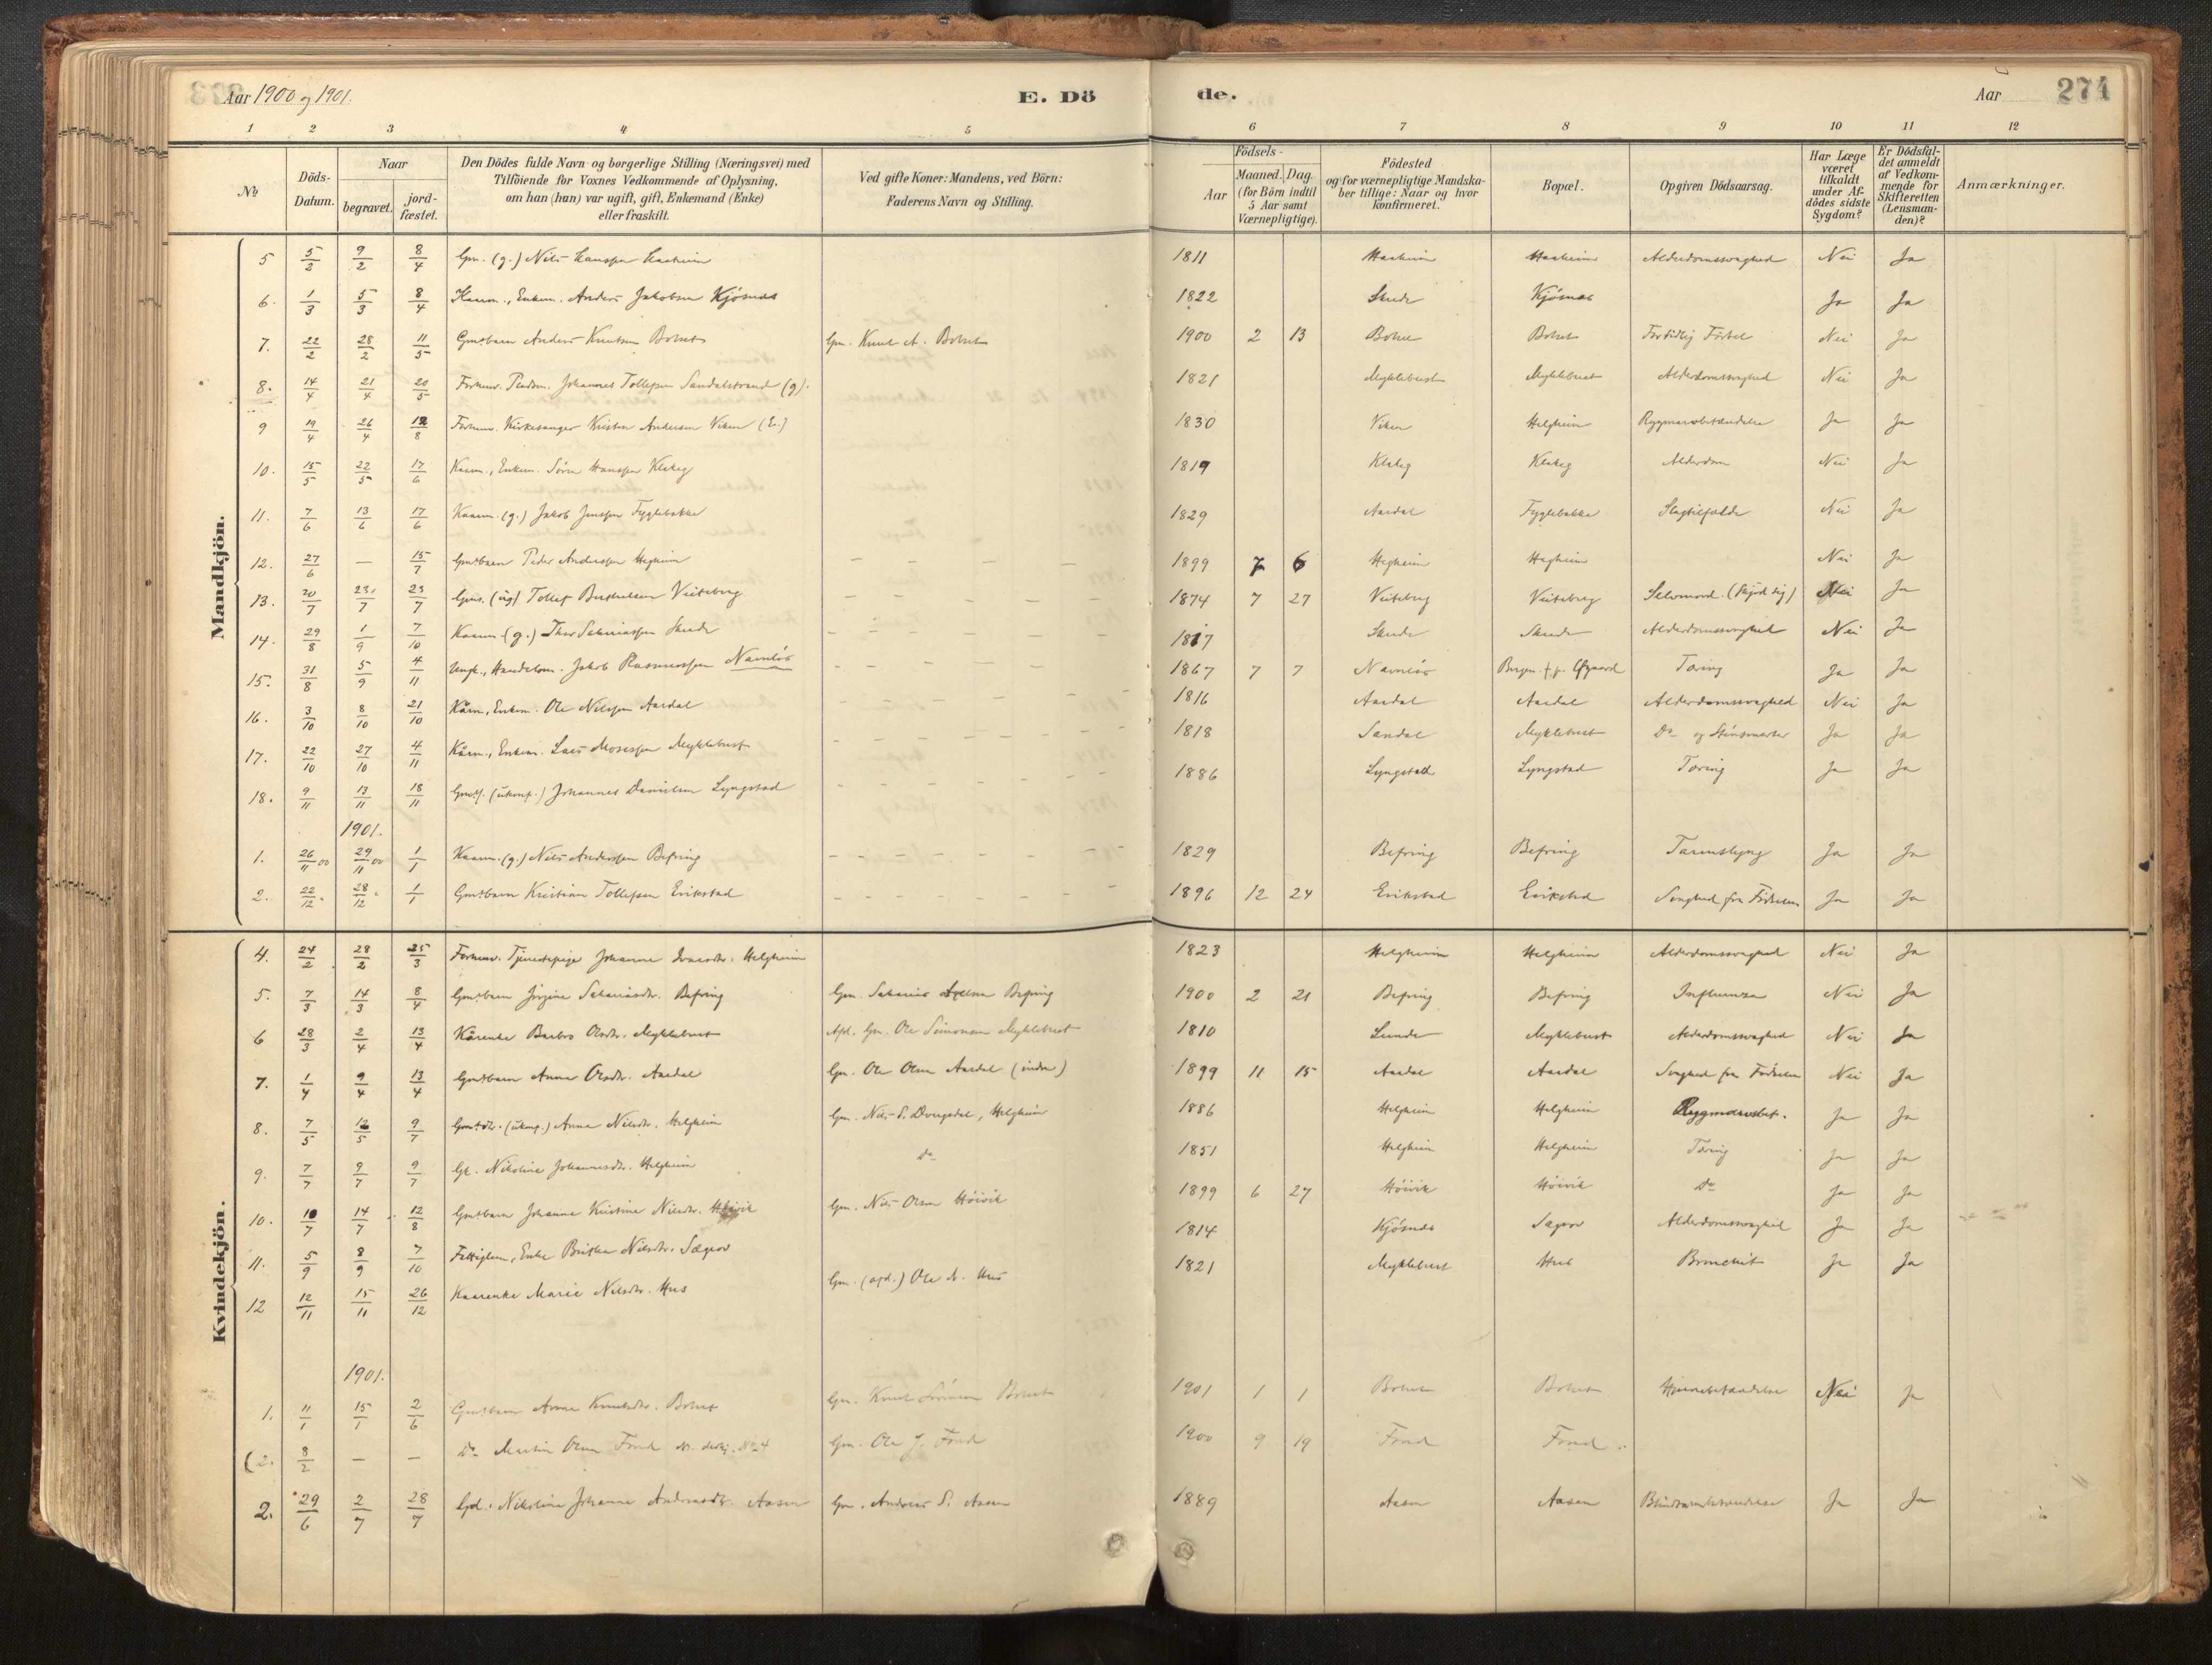 Aar 1900 og 1901.
E. Dö
de.
Aar
274
1 2 3 4 5 6 7 8 9 10 11 12
No
Döds-Datum.
Naar
begravet.
jord-fæstet.
Den Dödes fulde Navn og borgerlige Stilling (Næringsvei) med
Tilföiende for Voxnes Vedkommende af Oplysning,
om han (hun) var ugift, gift, Enkemand (Enke)
eller fraskilt.
Ved gifte Koner: Mandens, ved Börn:
Faderens Navn og Stilling.
Födsels-
Aar
Maaned. Dag.
(for Börn indtil
5 Aar samt
Værnepligtige).
Födested
og for værnepligtige Mandska-
ber tillige: Naar og hvor
konfirmeret.
Bopæl.
Opgiven Dödsaarsag.
Har Læge
været
tilkaldt
under Af-
dödes sidste
Sygdom?
Er Dödsfal-
det anmeldt
af Vedkom-
mende for
Skifteretten
(Lensman-
den)?
Anmærkninger.
Mandkjön.
5 5/2 9/2 8/4 Gm. (g.) Nils Hanssen Haaheim 1811 Haaheim Haaheim Alderdomssvaghed Nei Ja
6. 1/3 5/3 8/4 Kaarm., Enkem. Anders Jakobsen Kjösnes 1822 Skude... Kjösnes Ja Ja
7. 22/2 28/2 11/5 Gmsbarn Anders Knutsen Bolset Gm. Knut A. Bolset 1900 2 13 Bolset Bolset Fortidlig Födsel Nei Ja
8. 14/4 21/4 20/5 Forhenv. Johannes Tollefsen Sandalstrand (g). 1821 Myklebust Myklebust Alderdomssvaghed Nei Ja
9 19/4 26/4 12/8 Forhenv. Kirkesanger Kristen Andersen Viken (E.) 1830 Viken Helgheim Rygmarvsbetændelse Ja Ja
10. 15/5 22/5 17/6 Kaarm., Enkem. Sören Hanssen Klakeg 1819 Klakeg Klakeg Alderdom Nei Ja
11. 7/6 13/6 17/6 Kaarm. (g.) Jakob Jenssen Fyglebakke 1829 Aardal Fyglebakke Slagtilfælde Nei Ja
12. 27/6 — 15/7 Gmsbarn Peder Anderssen Hegheim 1899 7 6 Hegheim Hegheim Nei Ja
13. 20/7 23/7 23/7 Gms. (ug) Tollef Veiteberg 1874 7 27 Veiteberg Veiteberg Selvmord. (skjöd sig) Nei Ja
14. 29/8 1/9 7/10 Kaarm. (g.) Thor Sakariassen 1817 Alderdomssvaghed Nei Ja
15. 31/8 5/9 4/11 Ungk., Handelsm. Jakob Rasmussen Navnløs 1867 7 7 Navnløs Bergen Tæring Ja Ja
16. 3/10 8/10 21/10 Kårm., Enkem. Ole Nilssen Aardal 1816 Aardal Aardal Alderdomssvaghed Nei Ja
17. 22/10 27/10 4/11 Kårm., Enkem. Lars Mosessen Myklebust 1818 Sandal Myklebust Do og Stensmerter Ja Ja
18. 9/11 13/11 18/11 (ukonf.) Johannes Danielsen Lyngstad 1886 Lyngstad Lyngstad Tæring Ja Ja
1901.
1. 26/11 00 29/11 00 1/1 Kaarm. (g.) Nils Anderssen Befring 1829 Befring Befring Tarmslyng Ja Ja
2. 22/12 28/12 1/1 Gmsbarn Kristian Tollefsen Erikstad 1896 12 24 Erikstad Erikstad Svaghed fra Födselen Ja Ja
Kvindekjön.
4. 24/2 28/2 25/3 Forhenv. Tjenestepige Johanne Helgheim 1823 Helgheim Helgheim Alderdomssvaghed Nei Ja
5. 7/3 14/3 8/4 Gmsbarn Jörgine Sakariasdtr. Befring Gm. Sakarias Befring 1900 2 21 Befring Befring Influenza Nei Ja
6 28/3 2/4 13/4 Kårenke Barbro Olsdtr. Myklebust Afd. Gm. Ole Simonsen Myklebust 1810 Lunde Myklebust Alderdomssvaghed Nei Ja
7. 1/4 9/4 13/4 Gmsbarn Anna Olsdtr. Aardal Gm. Ole Olsen Aardal (indre) 1899 11 15 Aardal Aardal Svaghed fra Födselen Nei Ja
8. 7/5 12/5 9/7 (ukonf.) Anna Nilsdtr. Helgheim Gm. Nils S. Dvergsdal, Helgheim 1886 Helgheim Helgheim Rygmarvsbet. Ja Ja
9. 7/7 9/7 9/7 Gk. Nikoline Johannesdtr. Helgheim Do 1851 Helgheim Helgheim Tæring Ja Ja
10. 10/7 14/7 12/8 Gmsbarn Johanne Kristine Nilsdtr. Höivik Gm. Nils Olsen Höivik 1899 6 27 Höivik Höivik Do Ja Ja
11. 5/9 8/9 7/10 Fattiglem, Enke Nilsdtr. Sægrov 1814 Kjösnes Sægrov Alderdomssvaghed Ja Ja
12 12/11 15/11 26/12 Kaarenke Marie Nilsdtr. Hus Gm. (afd.) Ole A. Hus 1821 Myklebust Hus Bronchit Ja Ja
1901.
1. 11/1 15/1 2/6 Gmsbarn Anna Knutsdtr. Bolset Gm. Knut Bolset 1901 1 1 Bolset Bolset Hjernebetændelse Nei Ja
(2. 8/2 — — Do Martin Olsen Fond No 4 Gm. Ole J. Fond 1900 9 19 Fond Fond
2. 29/6 2/7 28/7 Nikoline Johanne Andreasdtr. Aasen Gm. Andreas S. Aasen 1889 Aasen Aasen Blindtarmsbetændelse Ja Ja